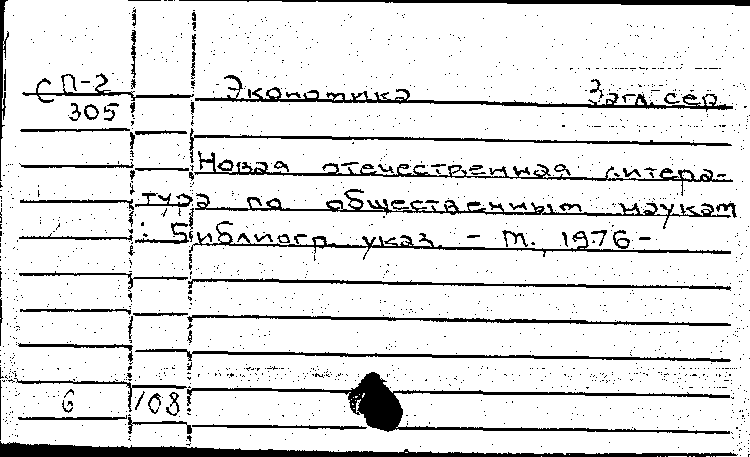 С П-2 Экономика Загл. сер.
305
Новая отечественная литера-
тура по общественным наукам
: Библиогр. указ. - М., 1976-
6 108